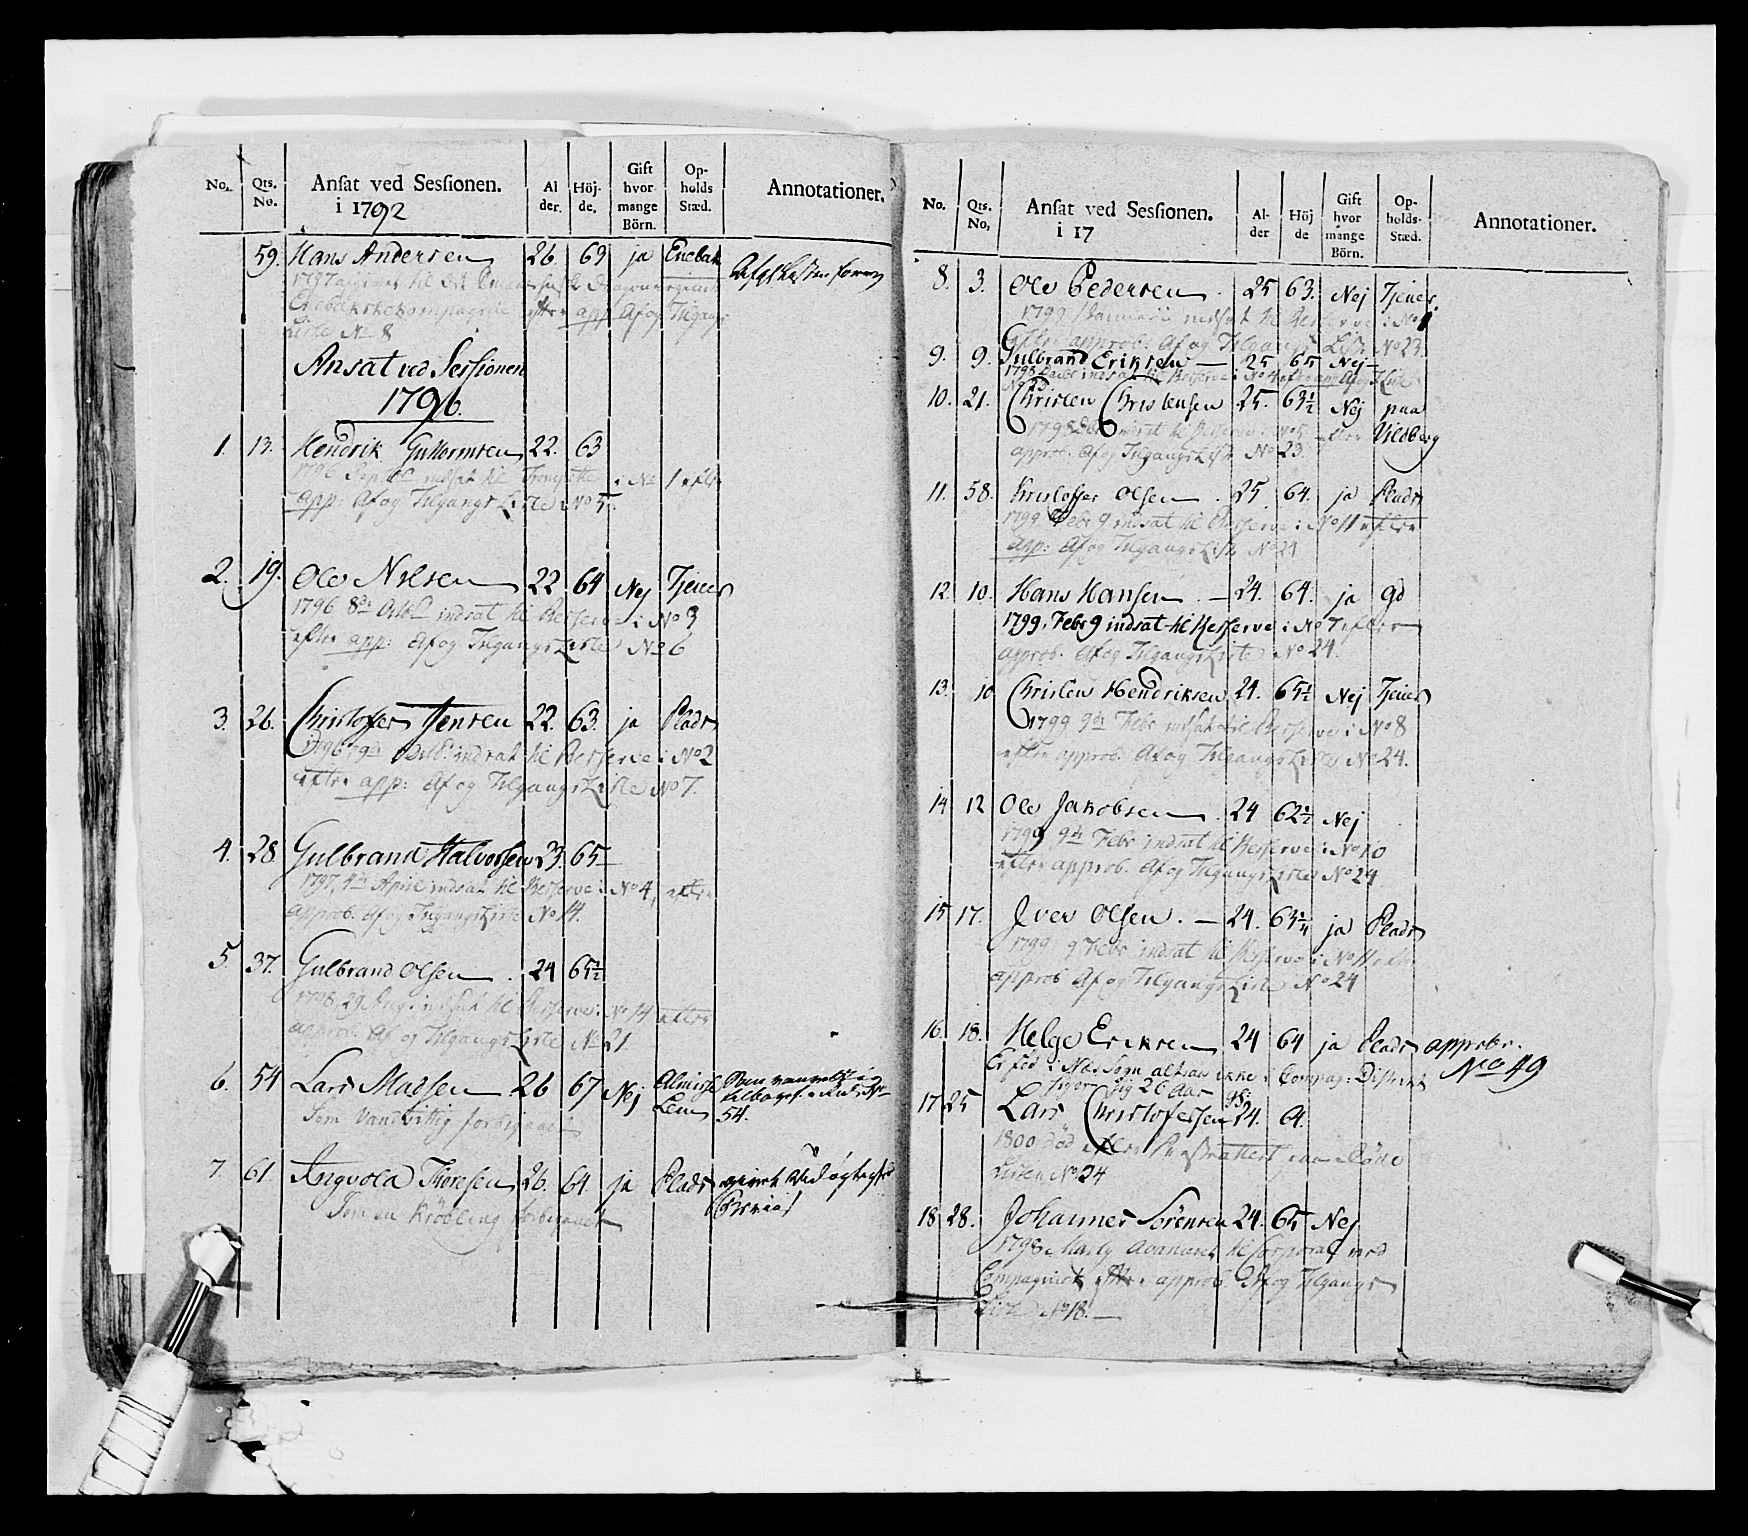 No. Qrs. No. Ansat ved Sessionen. i 1792 Al der. Höj- de. Gift hvor mange Börn. Op- holds Stæd. Annotationer.
59. Hans Andersen 26. 63 ja Enebak
Liste No 8
Ansat ved Sessionen
1796.
1. 13. Hendrik Guttormsen 22. 63
app: Af og Tilgangs Liste No 5
2. 19. Ole Nilsen 22 64 Nej Tjener
1796 8de indsat til Reserve i No 3
efter app: Af og Tilgangs Liste No 6
3. 26. Christoffer Jensen 22. 63. ja Plads
1796 9de indsat til Reserve i No 2
efter app: Af og Tilgangs Liste No 7.
4. 28 Gulbrand Halvorsen 23. 65
1797, 4de April indsat til Reserve i No 4, efter
approb. Af og Tilgangs Liste No 14.
5. 37. Gulbrand Olsen 24 65½
1798, 29 Aug: indsat til Reserve i No 14 efter
approb. Af og Tilgangs Liste No 21.
6. 54 Lars Madsen 26 67 Nej
Som Vanvittig forbigaaet
54.
7. 61. Ingvold Thoresen 26. 64 ja Plads
Som en Kröbling forbigaaet
No. Qrs. No, Ansat ved Sessionen. i 17 Al- der Höj de Gift hvor mange Börn. Op- holds- Stæd. Annotationer.
8. 3. Ole Pedersen 25 63. Nej Tjener
efter approb. Af og Tilgangs Liste No 23.
9. 9. Gulbrand Eriksen 25 65 Nej
No 23.
10. 21. Christen Christensen 25. 63½ Nej paa
Vildberg
approb. Af og Tilgangs Liste No 23.
11. 58. Kristoffer Olsen 25. 64. ja Plads
1799 Febr 9 indsat til Reserve i No 11 efter
app: Af og Tilgangs Liste No 24
12. 10. Hans Hansen 24. 64. ja gd
1799. Febr 9 indsat til Reserve i No 7 efter
approb. Af og Tilgangs Liste No 24.
13. 10 Christen Hendriksen 24. 65½ Nej Tjener
1799 9de Febr indsat til Reserve i No 8
efter approb. Af og Tilgangs Liste No 24.
14. 12 Ole Jakobsen 24 62½ Nej
1799 9de Febr indsat til Reserve i No 10
efter approb. Af og Tilgangs Liste No 24
15 17. Iver Olsen. 24. 63¾ ja Plads
1799 9 Febr indsat til Reserve i No 11 efter
approb Af og Tilgangs Liste No 24
16. 18. Helge Eriksen 24 64 ja Plads approb.
No 49
Er föd i Næs Sogn altsaa ikke i Compag: District
siger sig 26 Aar
17 25 Lars Christofersen 24. 64.
1800 död efter
Listen No 24
18 28. Johannes Sörensen 24. 65 Nej
1798 Marty Avanceret til Corporal ved
Compagniet efter approb. Af og Tilgangs
Liste No 18.